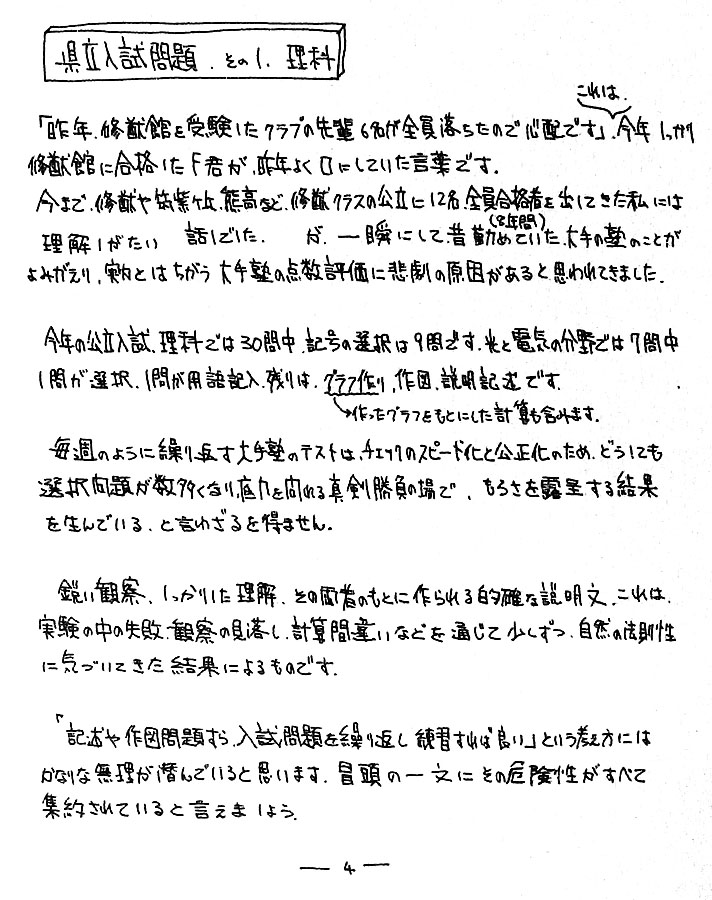 県立入試問題 . その1. 理科
これは、
「昨年、修猷館を受験したクラブの先輩6名が全員落ちたので心配です」、今年しっかり
修猷館に合格したF君が、昨年よく口にしていた言葉です。
今まで、修猷や筑紫ヶ丘、熊高など、修猷クラスの公立に12名、全員合格者を出してきた私には
(8年間)
理解しがたい 話でした. が、一瞬にして、昔勤めていた大手の塾のことが
よみがえり、実力とはちがう大手塾の点数評価に悲劇の原因があると思われてきました.
今年の公立入試、理科では30問中、記号の選択は9問です. 光と電気の分野では7問中
1問が選択、1問が用語記入、残りは、グラフ作り、作図、説明記述です.
作ったグラフをもとにした計算も含みます。
毎週のように繰り返す大手塾のテストは、チェックのスピード化と公正化のため、どうしても
選択問題が数多くなり、底力を問われる真剣勝負の場で、もろさを露呈する結果
を生んでいる、と言わざるを得ません。
鋭い観察、しっかりした理解、その両者のもとに作られる的確な説明文、これは、
実験の中の失敗、観察の見落し、計算間違いなどを通じて少しずつ、自然の法則性
に気づいてきた結果によるものです.
「記述や作図問題すら、入試問題を繰り返し練習すれば良い」という考え方には
かなりな無理が潜んでいると思います. 冒頭の一文にその危険性がすべて
集約されていると言えましょう.
— 4 —